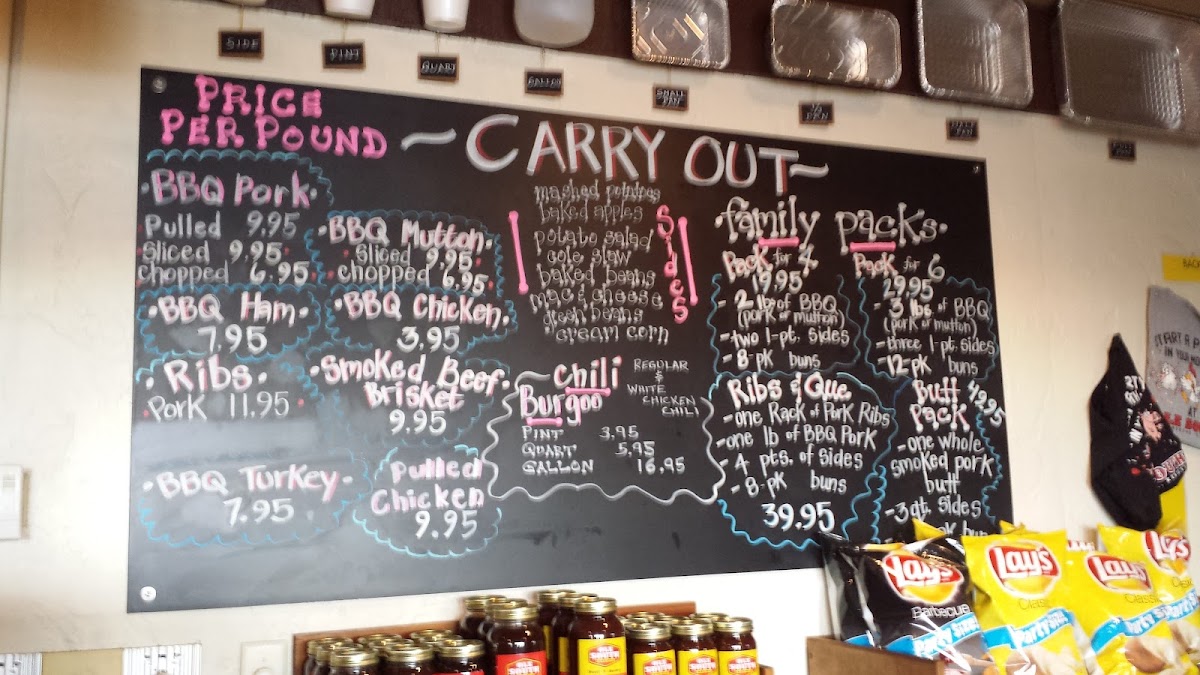 SIDE
PINT
QUART
GALLON
SMALL
PAN
1/2
PAN
HALF
PAN
FULL
PAN
PRICE
PER POUND
~CARRY OUT~
·BBQ Pork·
Pulled 9.95
Sliced 9.95
chopped 6.95
·BBQ Mutton·
Sliced 9.95
chopped 6.95
·BBQ Ham·
7.95
·BBQ Chicken·
3.95
·Ribs·
Pork 11.95
·Smoked Beef·
Brisket
9.95
·BBQ Turkey·
7.95
Pulled
Chicken
9.95
Sides
mashed potatoes
baked apples
potato salad
cole slaw
baked beans
mac & cheese
green beans
cream corn
chili
Burgoo
REGULAR
&
WHITE
CHICKEN
CHILI
PINT 3.95
QUART 5.95
GALLON 16.95
·family packs·
Pack for 4
19.95
- 2 lbs of BBQ
(pork or mutton)
- two 1-pt. sides
- 8-pk buns
Pack for 6
29.95
- 3 lbs. of BBQ
(pork or mutton)
- three 1-pt. sides
- 12-pk buns
Ribs & Que
- one Rack of Pork Ribs
- one lb of BBQ Pork
4 pts. of sides
- 8-pk buns
39.95
Butt 49.95
Pack
- one whole
smoked pork
butt
- 3 qt. sides
buns
Lay's
Barbecue
Party Size
Lay's
Classic
Party
Lay's
Classic
Party Size
Lay's
OLE
SOUTH